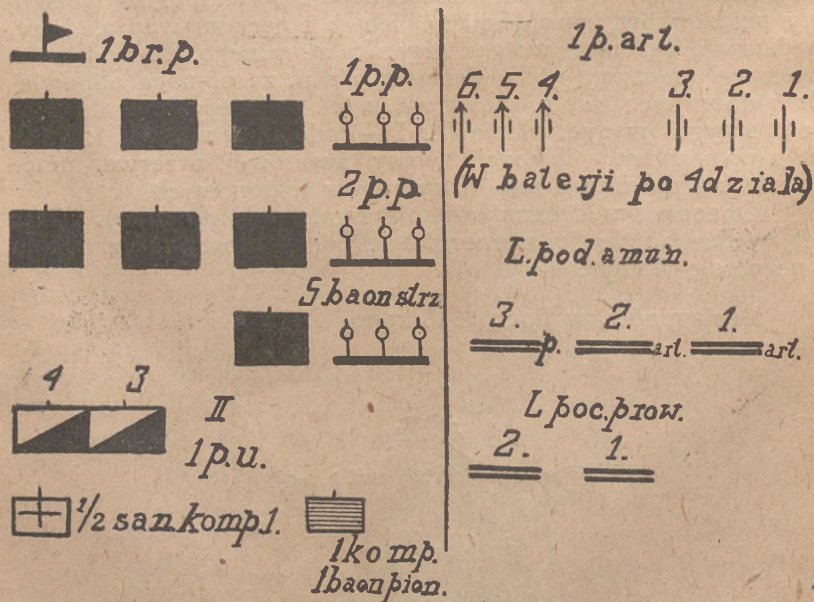 1 br. p.
1 p.p.
2 p.p.
5 baon strz
4 3
II
1 p.u.
1/2 san. komp 1.
1 komp.
1 baon pion.
1 p. art.
6. 5. 4. 3. 2. 1.
(W baterji po 4 działa)
L. pod. amun.
3. 2. 1.
p. art. art.
L poc. prow.
2. 1.